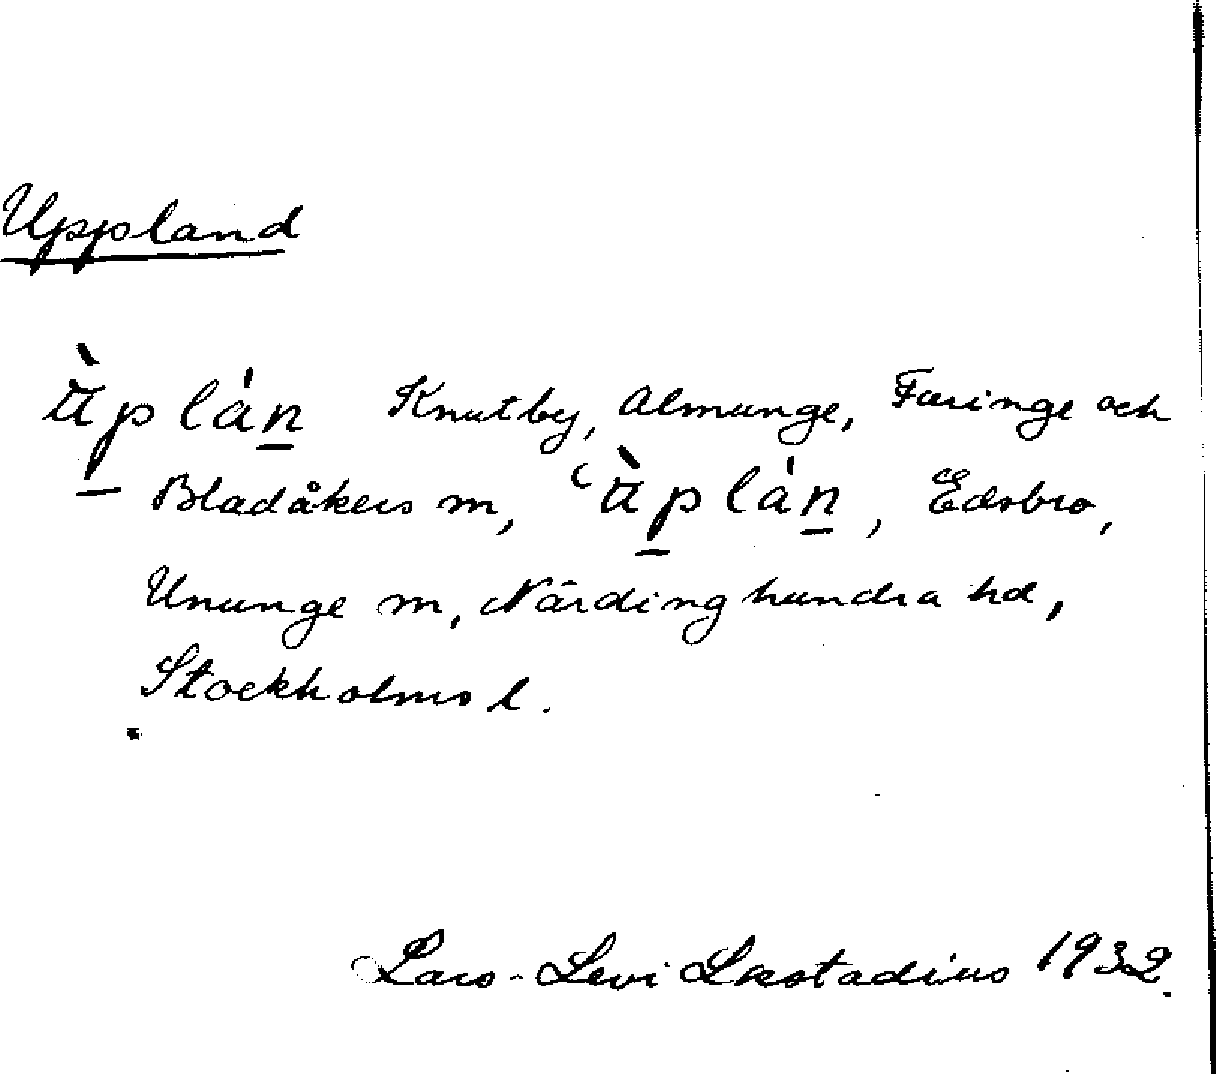 Uppland
ùp̲làn̲ Knutby, Almunge, Faringe och
Bladåkers m, ùp̲làn̲, Edsbro,
Ununge m, Närdinghundra hd,
Stockholms l.
Lars-Levi Læstadius 1932.